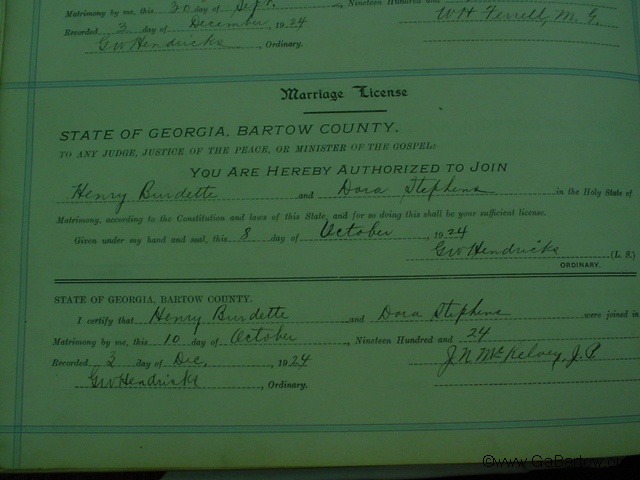 Matrimony by me, this 30 day of Sept. , Nineteen Hundred and
Recorded 3 day of December, 1924 W H Ferrell, M. G.
GW Hendricks, Ordinary.
Marriage License
STATE OF GEORGIA, BARTOW COUNTY.
TO ANY JUDGE, JUSTICE OF THE PEACE, OR MINISTER OF THE GOSPEL:
YOU ARE HEREBY AUTHORIZED TO JOIN
Henry Burdette and Dora Stephens in the Holy State of
Matrimony, according to the Constitution and laws of this State, and for so doing this shall be your sufficient license.
Given under my hand and seal, this 8 day of October, 1924
GW Hendricks (L. S.)
ORDINARY.
STATE OF GEORGIA, BARTOW COUNTY.
I certify that Henry Burdette and Dora Stephens were joined in
Matrimony by me, this 10 day of October, Nineteen Hundred and 24
Recorded 3 day of Dec. 1924 J. N. McKelvey, J. P.
GW Hendricks, Ordinary.
©www.GaBartow.